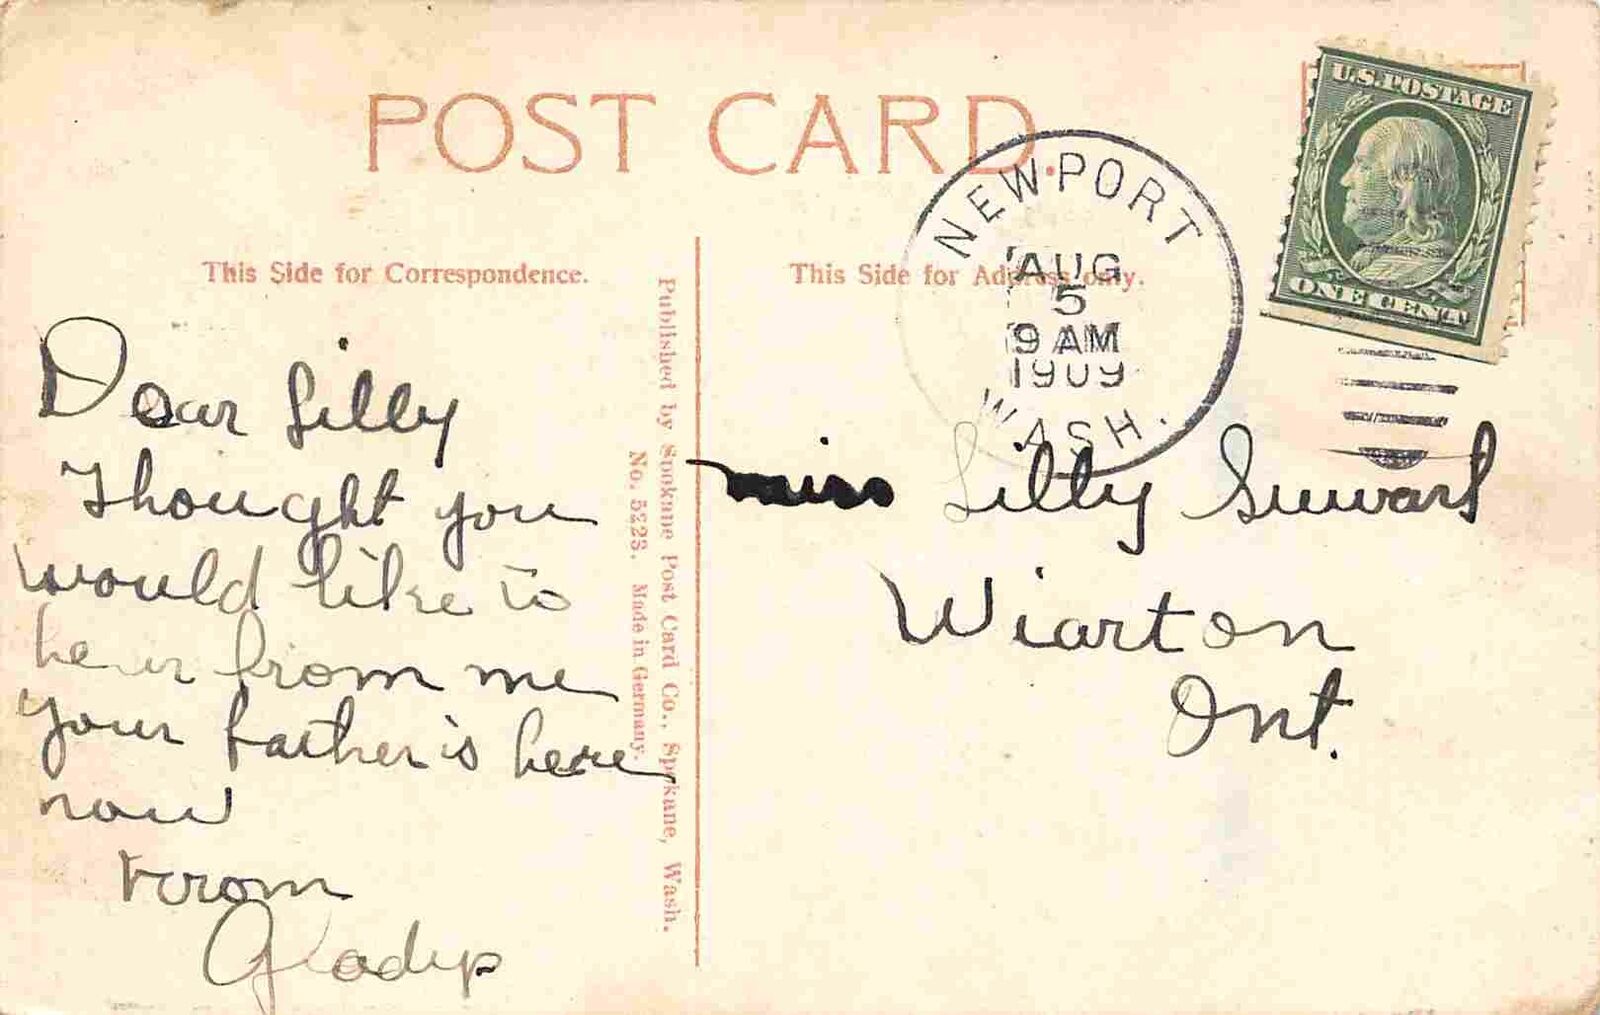 POST CARD.
U.S. POSTAGE
ONE CENT
NEWPORT
AUG
5
9 AM
1909
WASH.
This Side for Correspondence.
This Side for Address only.
Dear Lilly
Thought you
would like to
hear from me
your father is here
now
From
Gladys
Published by Spokane Post Card Co., Spokane, Wash.
No. 5223. Made in Germany.
miss Lilly
Wiarton
Ont.